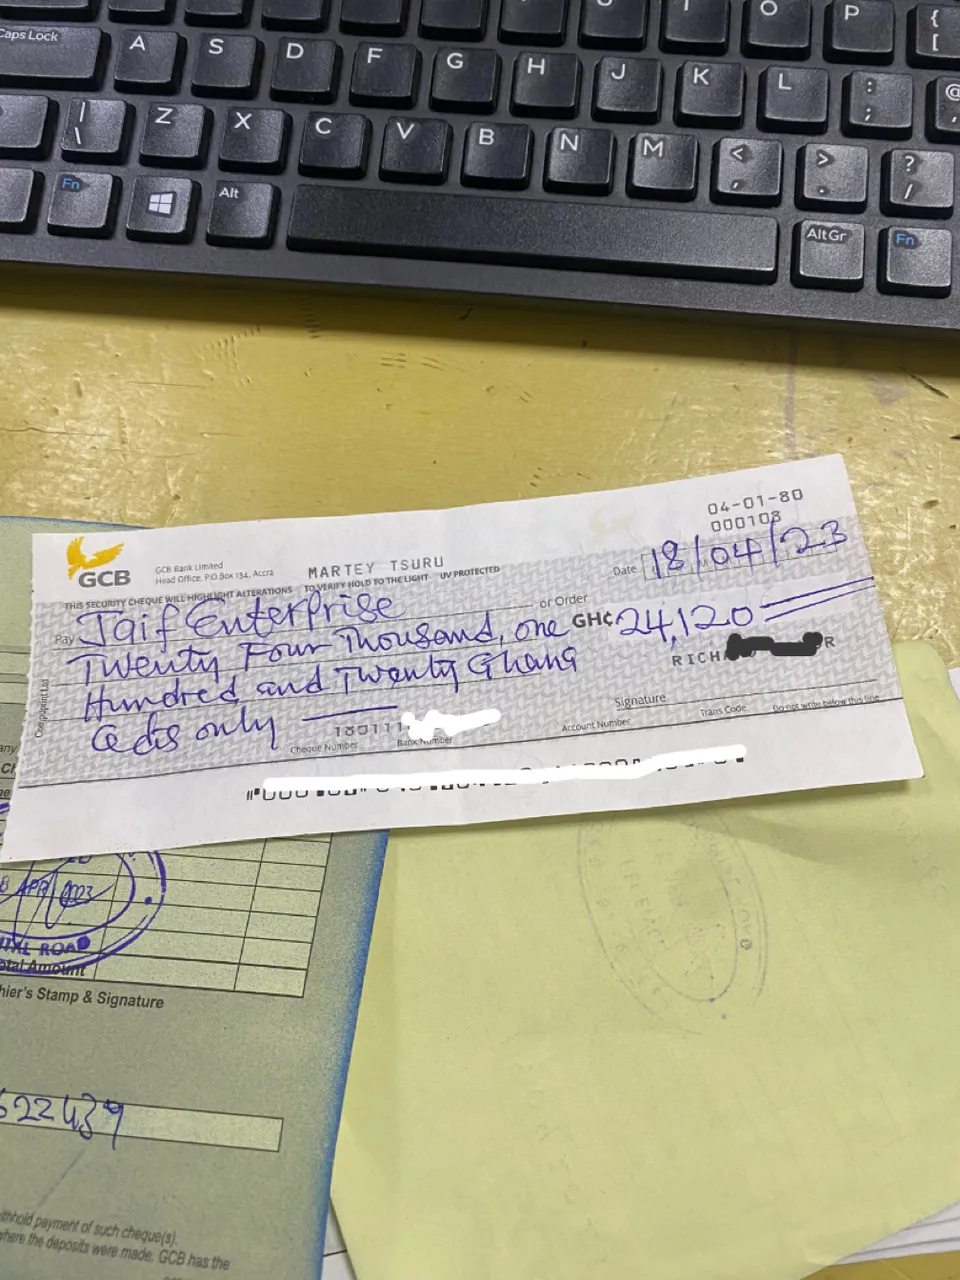 O P { [
Caps Lock A S D F G H J K L : ; @
| \ Z X C V B N M < , > . ? /
Fn Alt Alt Gr Fn
04-01-80
000108
GCB
GCB Bank Limited
Head Office, P.O.Box 134, Accra
MARTEY TSURU
THIS SECURITY CHEQUE WILL HIGHLIGHT ALTERATIONS TO VERIFY HOLD TO THE LIGHT UV PROTECTED
Date 18/04/23
Pay Jaif Enterprise or Order
Twenty Four Thousand, one GH¢ 24,120
Hundred and Twenty Ghana
Cedis only
Signature
Cheque Number Bank Number Account Number Trans Code Do not write below this line
APR 2023
ROAD
Total Amount
hier's Stamp & Signature
622439
withhold payment of such cheque(s).
where the deposits were made. GCB has the